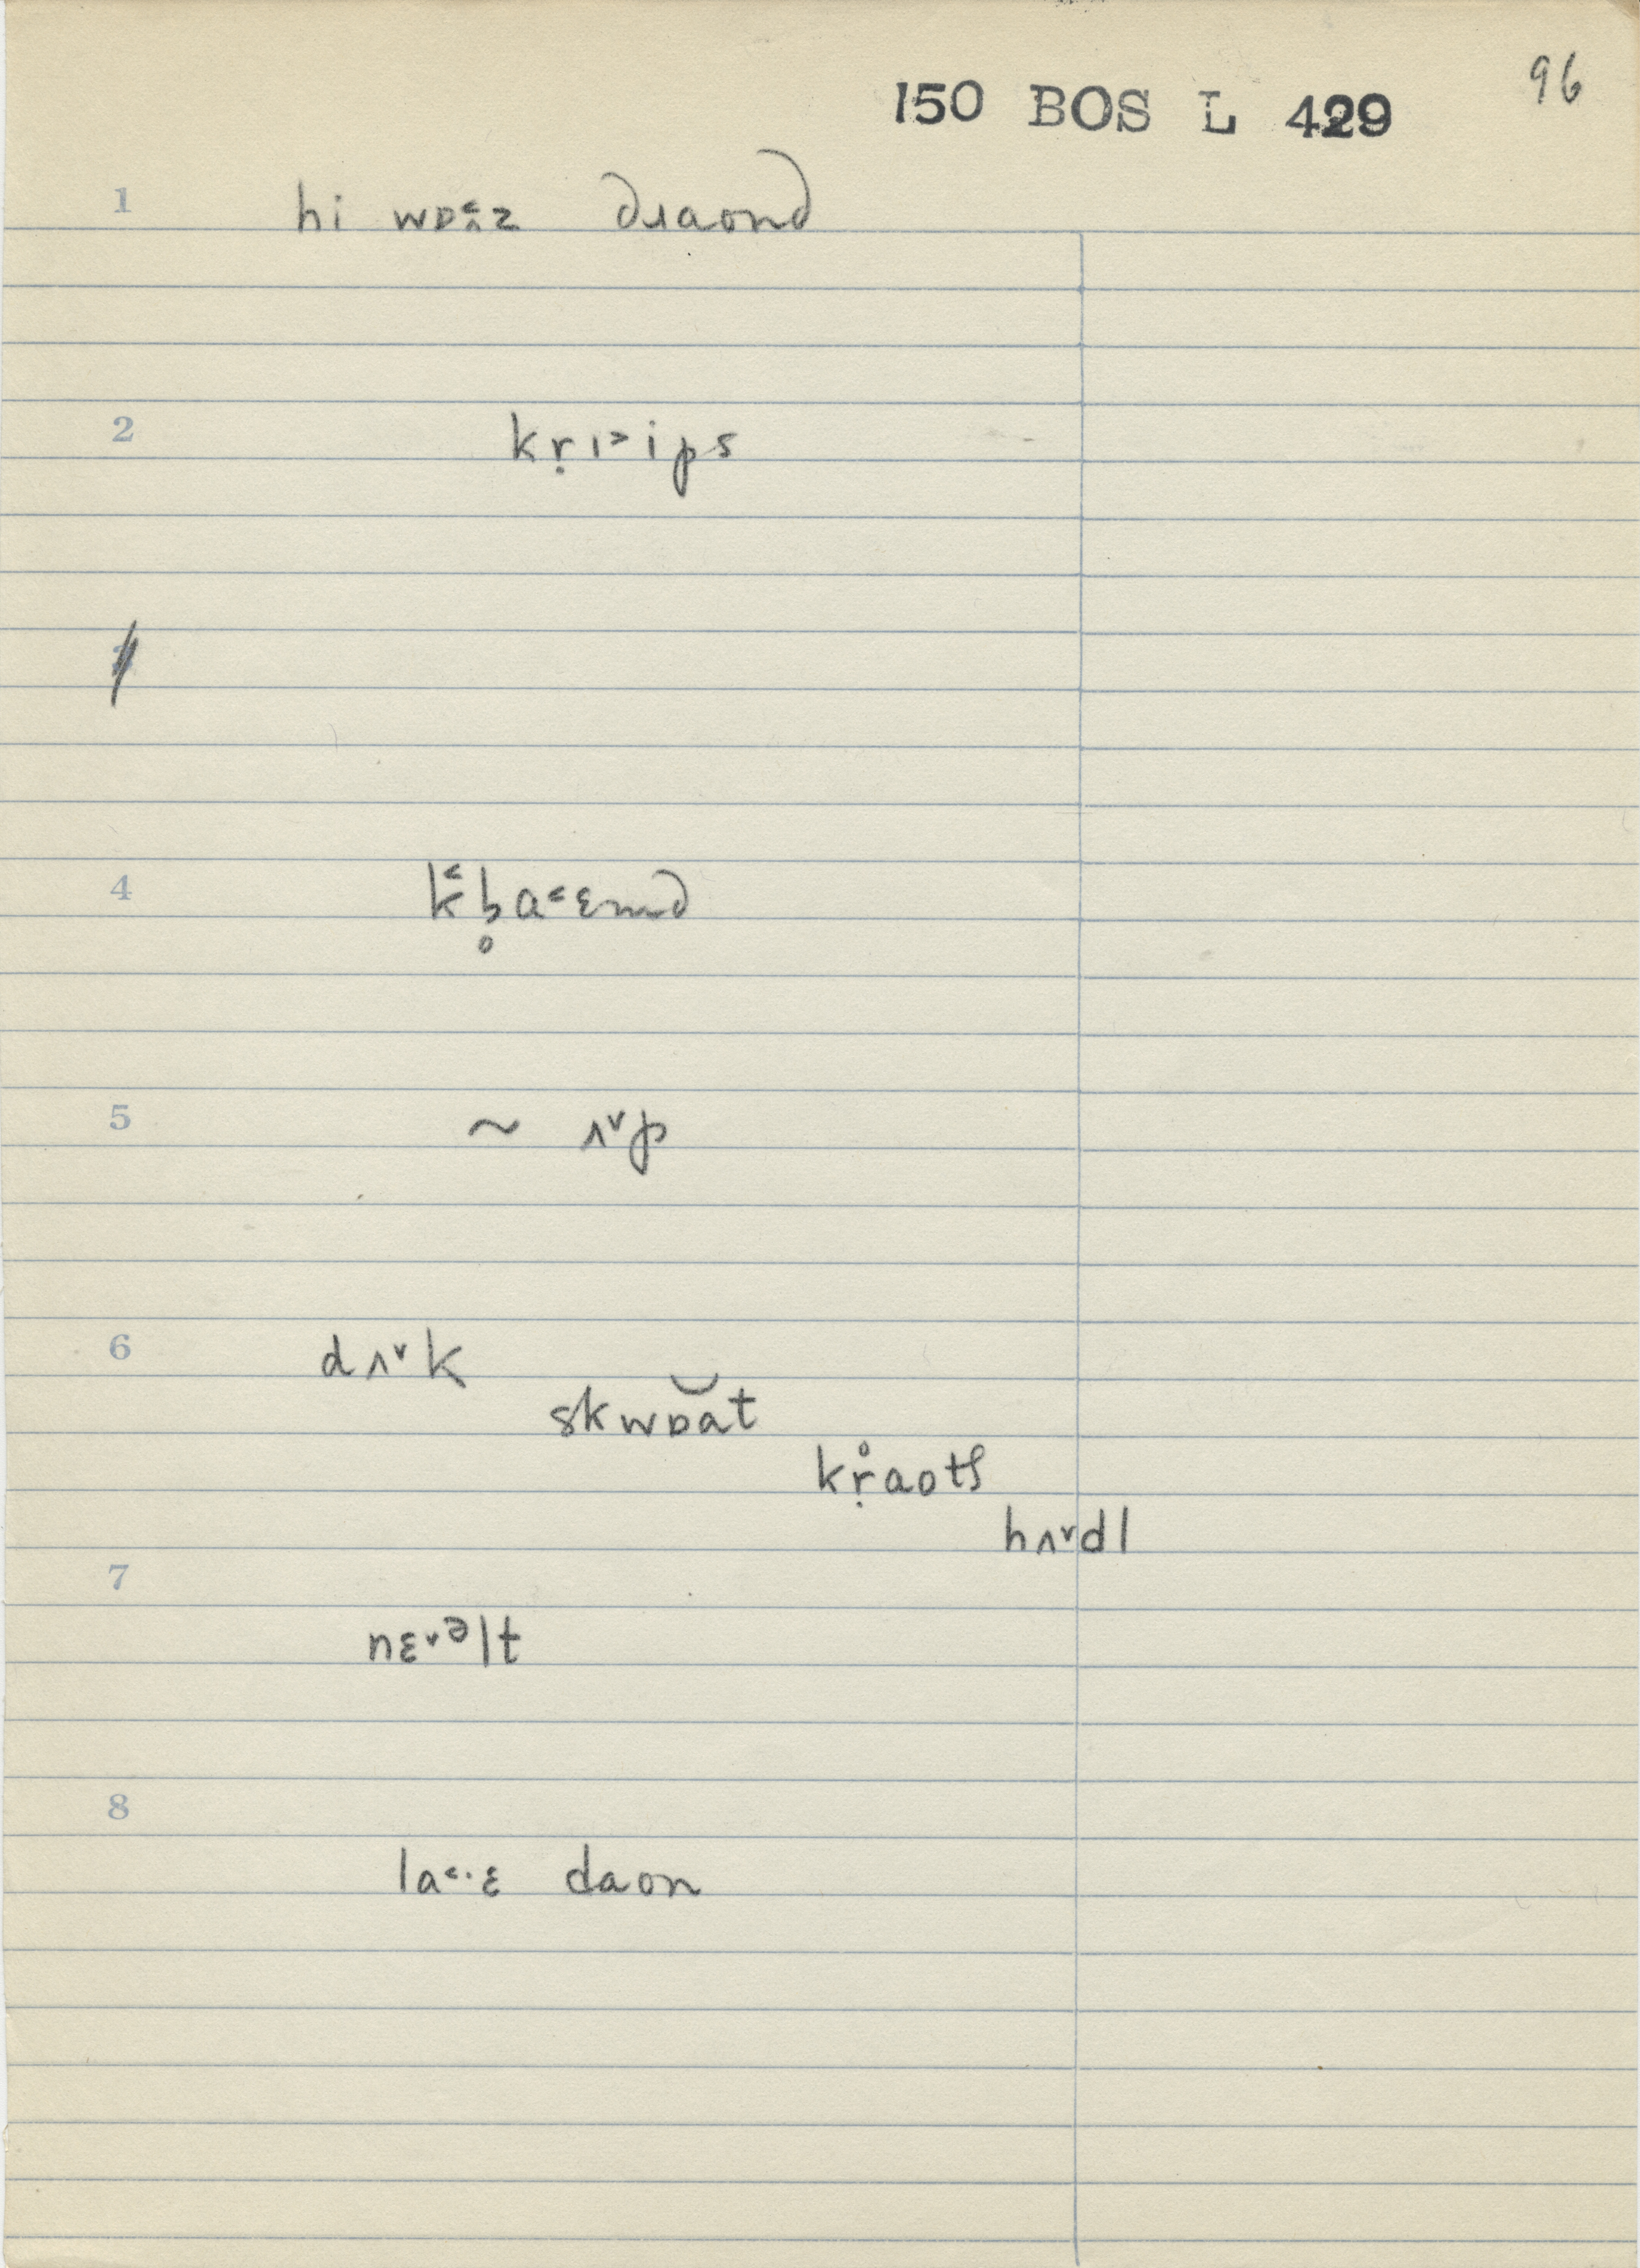 96
150 BOS L 429
1 hi wɒ˂ʌz ɹaond
2 kṛɪ˃ips
3
4 k˂b̥a˂ɛmd
5 ~ ʌ˅p
6 dʌ˅k
skwɒ̆at
kṛ̊aotʃ
hʌ˅dl
7
nɛ˅ᵊlt
8
la˂·ɛ daon